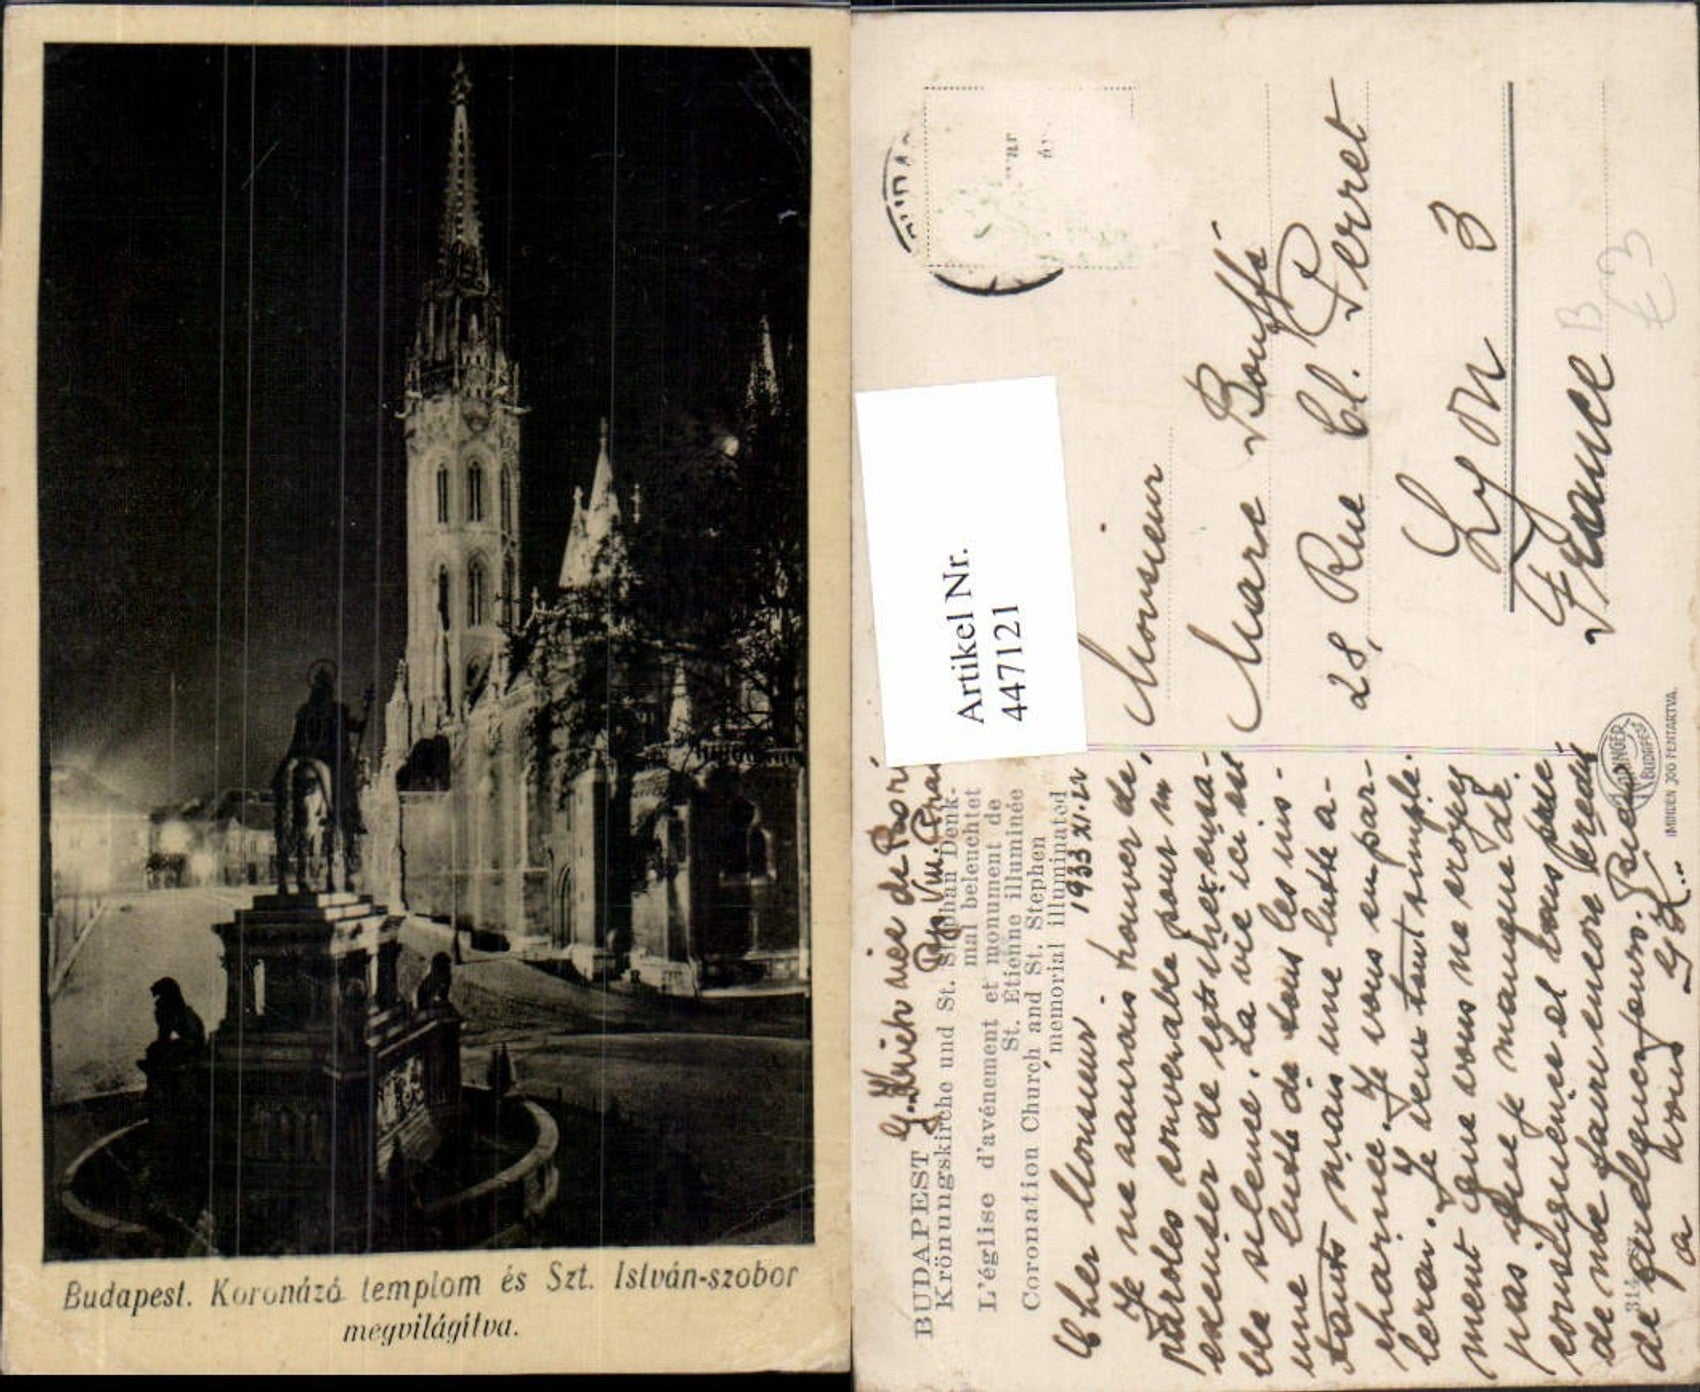 Budapest. Koronázó templom és Szt. István-szobor
megvilágítva.
Artikel Nr.
447121
BUDAPEST
Krönungskirche und St. Stephan Denk-
mal beleuchtet
L'église d'avénement et monument de
St. Étienne illuminée
Coronation Church and St. Stephen
memorial illuminated
1933 XI. 22
Cher Monsieur.
Je ne saurais trouver de
paroles convenable pour m'
excuser de inexcusa-
ble silence. La vie ici est
une lutte de tous les ins-
tants mais une lutte a-
charnée. Je vous en par-
lerai. Je veux tout simple-
ment que vous ne croyez
pas que je manque de
conséquence et vous prie
de me faire encore crédit
de quelques jours. Bien
a vous G.K...
Monsieur
Marc Bouffa-
28, Rue Cl. Perret
Lyon 3
France
B
€3
BUDAPEST
MINDEN JOG FENTARTVA.
314